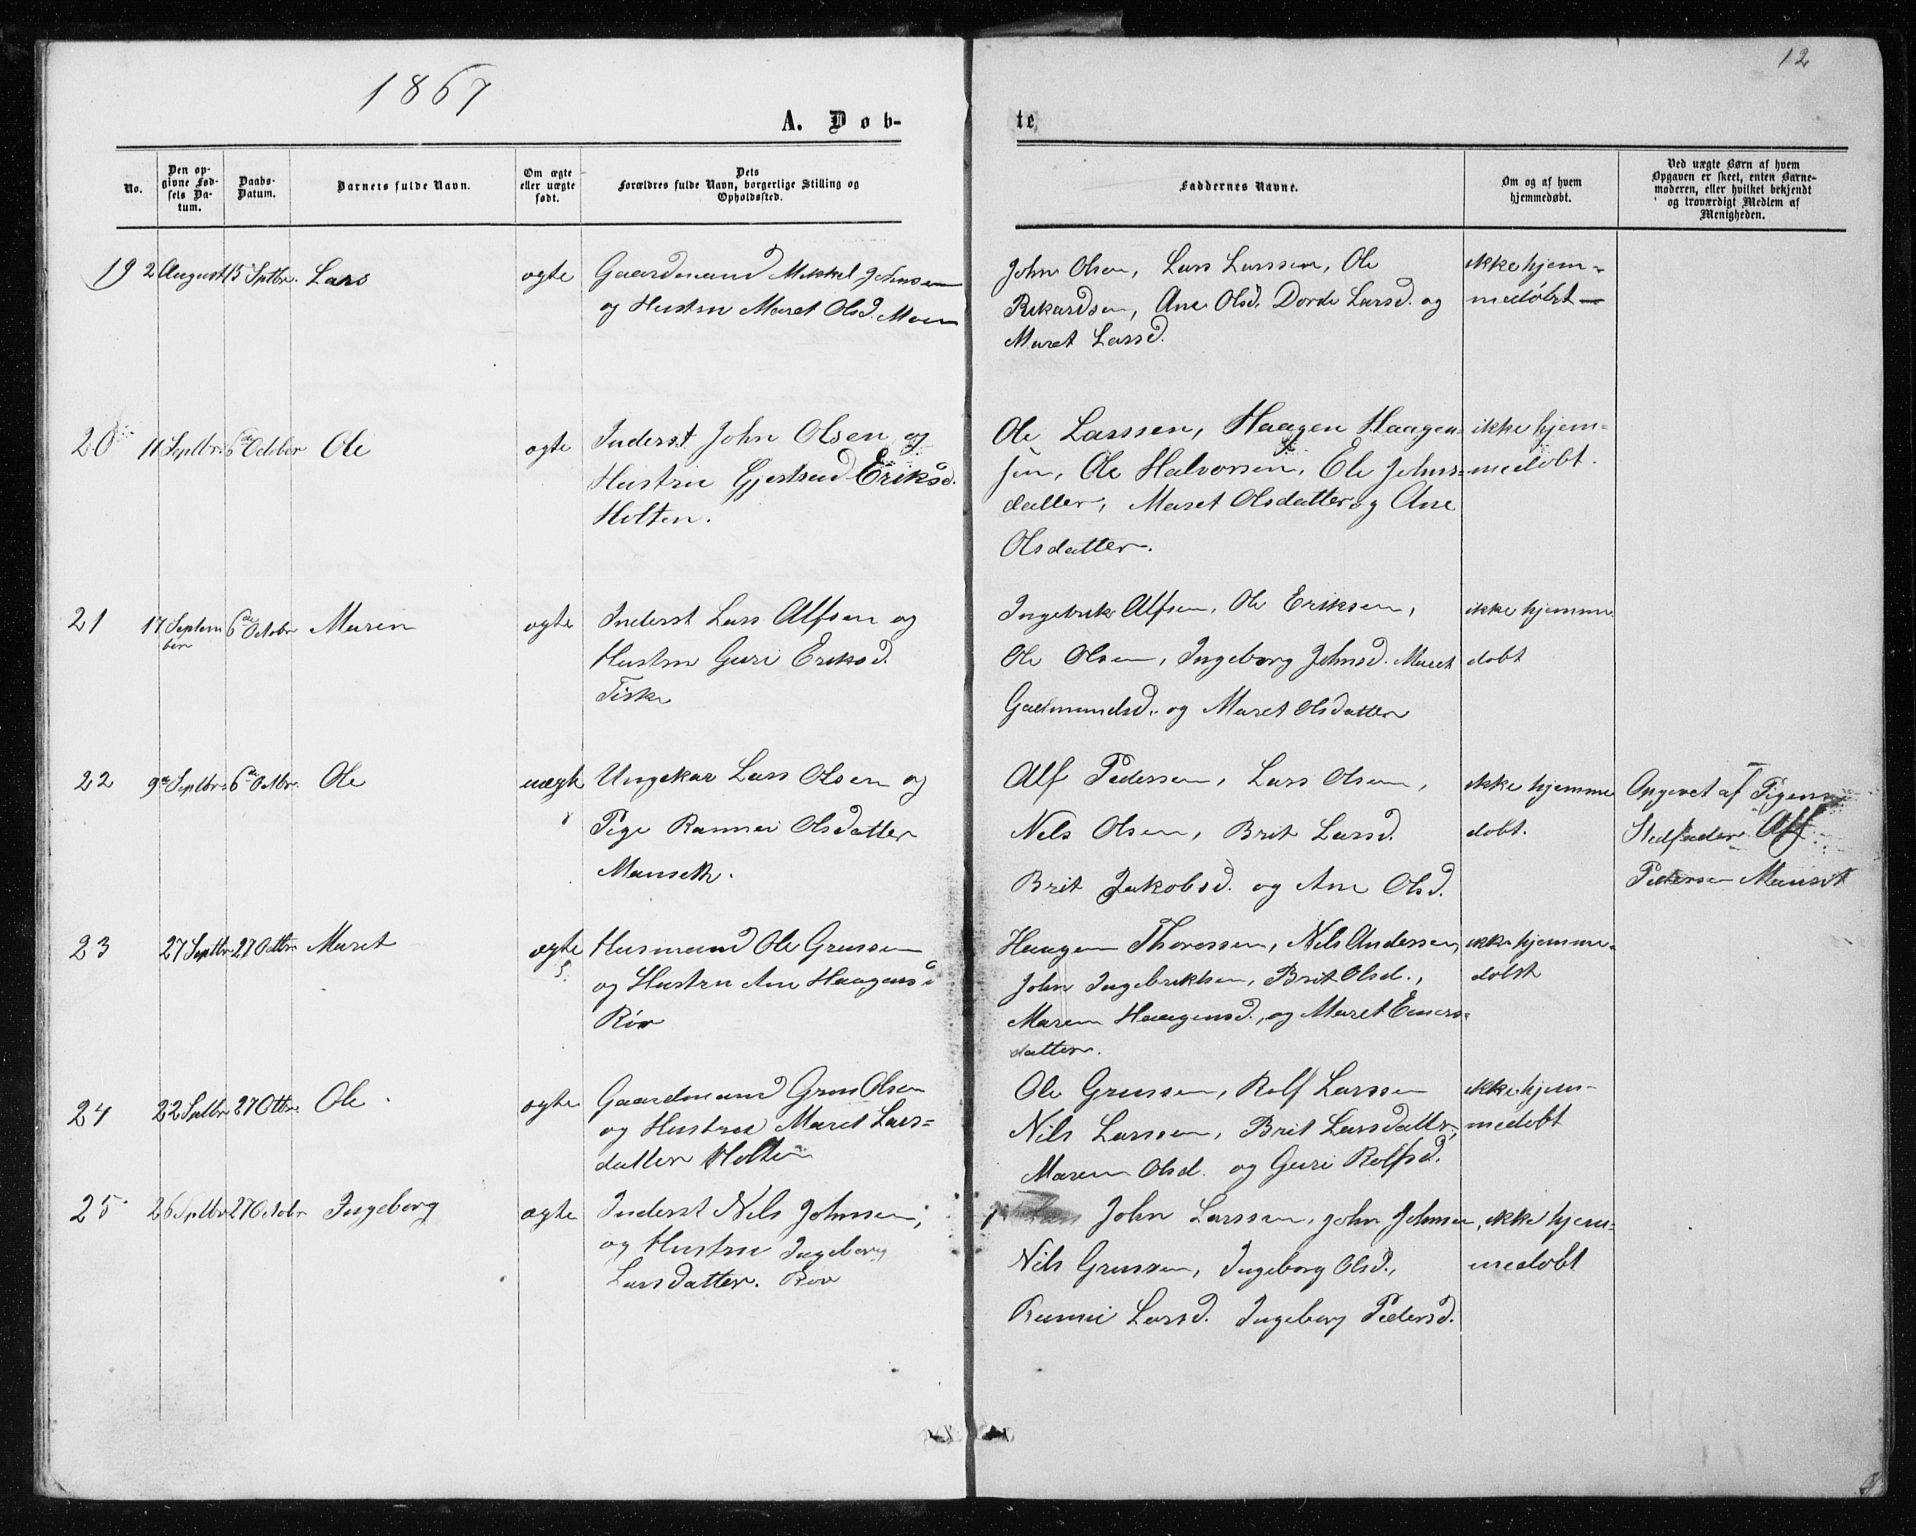 1867
12
A. Døb-
te
No.
Den op-
givne Fød-
sels Da-
tum.
Daabs-
Datum.
Barnets fulde Navn.
Om ægte
eller uægte
født.
Dets
Forældres fulde Navn, borgerlige Stilling og
Opholdssted.
Faddernes Navne.
Om og af hvem
hjemmedøbt.
Ved uægte Børn af hvem
Opgaven er skeet, enten Barne-
moderen, eller hvilket bekjendt
og troværdigt Medlem af
Menigheden.
19 2 August 15 Sptbr. Lars ogte Gaardmand Mikkel Johnsen
og Hustru Maret Olsd. Moen
John Olsen, Lars Larssen, Ole
Rikardsen, Ane Olsd. Dorde Larsd. og
Maret Larsd.
ikke hjem-
medøbt —
20 11 Septbr. 6te October Ole ogte Inderst John Olsen og
Hustru Gjertrud Eriksd.
Holten.
Ole Larssen, Haagen Haagen-
sen, Ole Halvorsen, Ele Johns-
datter, Maret Olsdatter og Ane
Olsdatter.
ikke hjem-
medobt.
21 17 Septem
ber 6te Octobr Maren ogte Inderst Lars Alfsen og
Hustru Guri Eriksd.
Fiske
Ingebrik Alfsen, Ole Eriksen,
Ole Olsen, Ingeborg Johnsd. Maret
Gudmundsd. og Maret Olsdatter
ikke hjemme
dobt
22 9de Septbr. 6te Octbr. Ole uægte Ungekar Lars Olsen og
Pige Rannei Olsdatter
Manseth.
Alf Pedersen, Lars Olsen,
Nels Olsen, Brit Larsd.
Brit Jakobsd. og Ane Olsd.
ikke hjemme
dobt.
Opgivet af Pigens
Stedfader Alf
Pedersen Manset
23 27 Septbr 27 Octbr Maret ægte Husmand Ole Grussen
og Hustru Ane Haagensd
Röv
Haagen Thoressen, Nils Andersen,
John Ingebriktsen, Brit Olsd.,
Maren Haagensd., og Maret Einars-
datter.
ikke hjemme-
dobt
24 22 Sptbr 27 Octbr. Ole ogte Gaardmand Grus Olsen
og Hustru Maret Lars-
datter Holten
Ole Grussen, Rolf Larssen
Nils Larssen, Brit Larsdatter,
Maren Olsd. og Guri Rolfsd.
ikke hjem-
medobt
25 26 Sptbr 27 Octobr Ingeborg ægte Inderst Nils Johnsen,
og Hustru Ingeborg
Larsdatter. Röv
John Larssen, John Johnsen,
Nils Grussen, Ingeborg Olsd.,
Rannei Larsd. Ingeborg Pedersd.
ikke hjem-
medobt